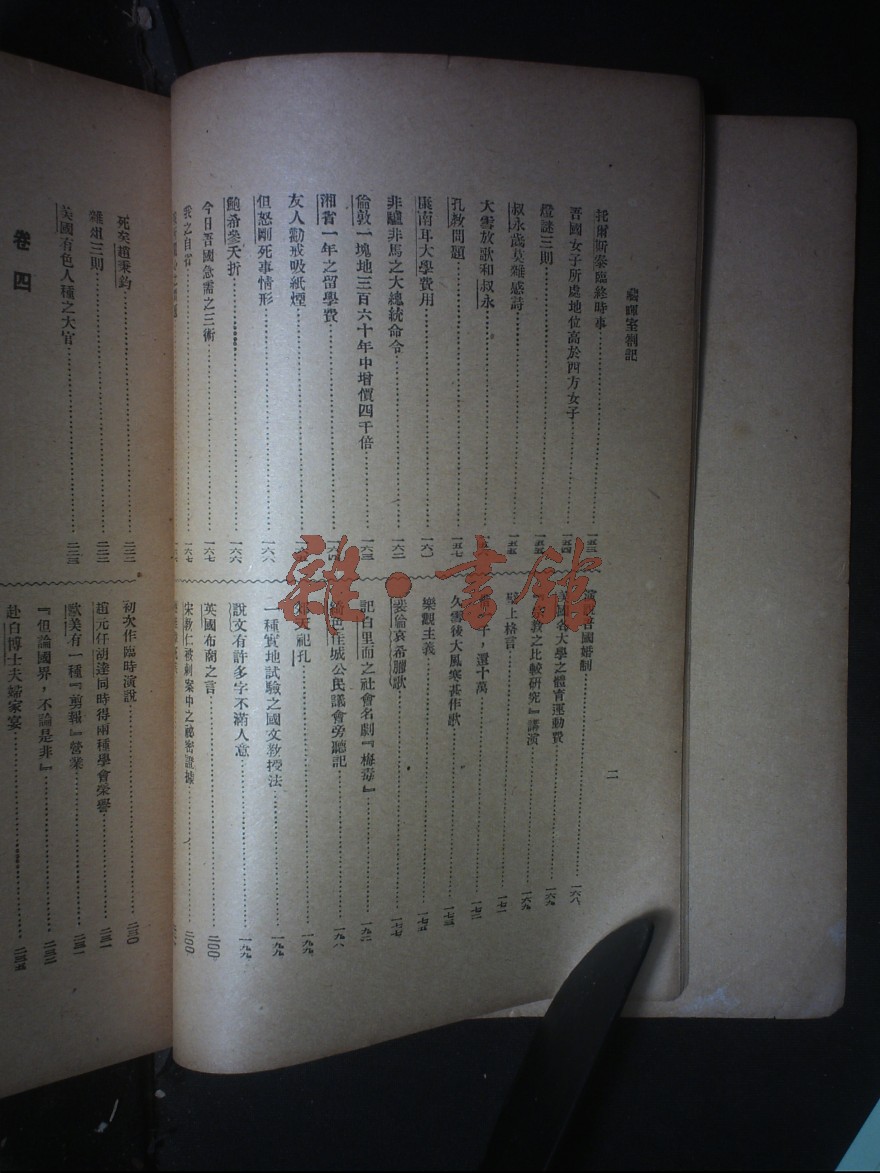 藏暉室劄記
二
托爾斯泰臨終時事……一五三
吾國女子所處地位高於西方女子……一五四
燈謎三則……一五五
叔永歲莫雜感詩……一五五
大雪放歌和叔永……
孔教問題……一五七
康南耳大學費用……一六〇
非驢非馬之大總統命令……一六二
倫敦一塊地三百六十年中增價四千倍……一六三
湘省一年之留學費……一六四
友人勸戒吸紙煙……
但怒剛死事情形……一六六
鮑希參夭折……一六六
今日吾國急需之三術……一六七
我之自省……一六七
演說吾國婚制……一六八
美國各大學之體育運動費……一六九
宗教之比較研究』講演……一六九
壁上格言……一七一
子,還十萬……一七二
久雪後大風寒甚作歌……一七三
樂觀主義……一七五
裴倫哀希臘歌……一七七
記白里而之社會名劇『梅毒』……一九二
綺色佳城公民議會旁聽記……一九八
郊天祀孔……一九九
一種實地試驗之國文教授法……一九九
說文有許多字不滿人意……一九九
英國布商之言……二〇〇
宋教仁被刺案中之祕密證據……二〇〇
死矣趙秉鈞……二二二
雜俎三則……二二二
美國有色人種之大官……二二三
卷四
初次作臨時演說……二三〇
趙元任胡達同時得兩種學會榮譽……二三一
歐美有一種『剪報』營業……二三一
『但論國界,不論是非』……二三二
赴白博士夫婦家宴……二三五
雜·書館